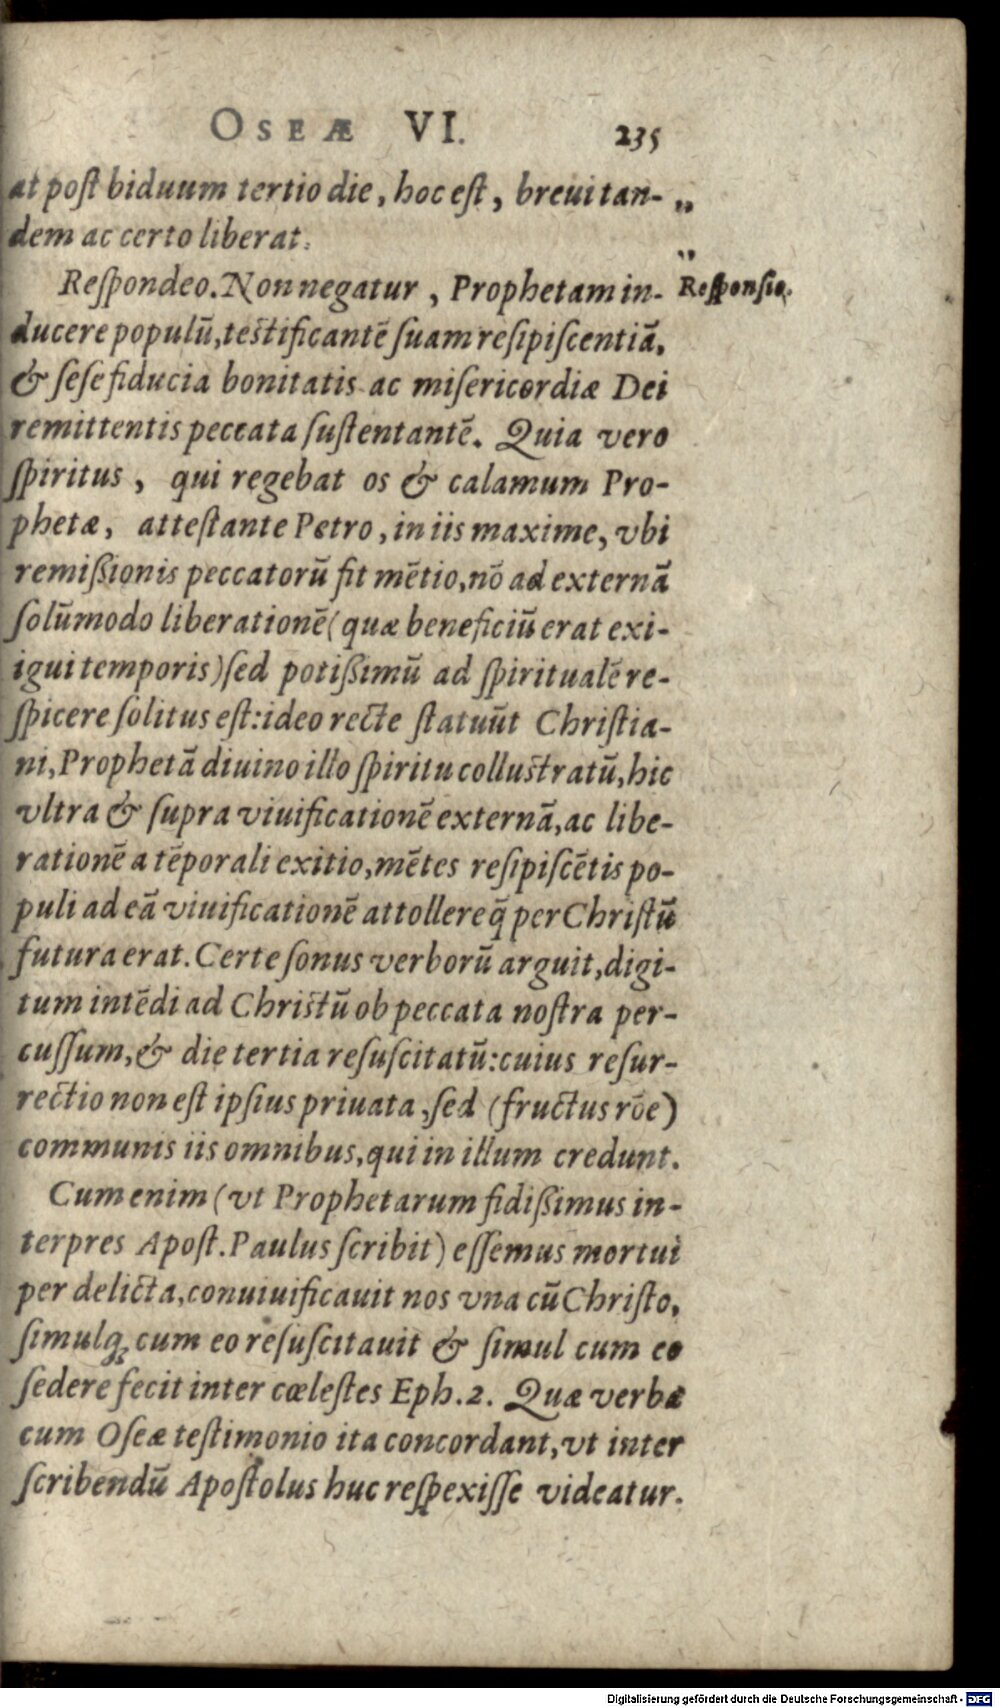 OSEÆ VI. 235
at post biduum tertio die, hoc est, breui tan- „
dem ac certo liberat. „
Respondeo. Non negatur, Prophetam in- Responsio.
ducere populū, testificantē suam resipiscentiā,
& sese fiducia bonitatis ac misericordiæ Dei
remittentis peccata sustentantē. Quia vero
spiritus, qui regebat os & calamum Pro-
phetæ, attestante Petro, in iis maxime, vbi
remißionis peccatorū fit mētio, nō ad externā
solūmodo liberationē (quæ beneficiū erat exi-
igui temporis) sed potißimū ad spiritualē re-
spicere solitus est: ideo recte statuūt Christia-
ni, Prophetā diuino illo spiritu collustratū, hic
vltra & supra viuificationē externā, ac libe-
rationē a tēporali exitio, mētes resipiscētis po-
puli ad eā viuificationē attollere q̄ per Christū
futura erat. Certe sonus verborū arguit, digi-
tum intēdi ad Christū ob peccata nostra per-
cussum, & die tertia resuscitatū: cuius resur-
rectio non est ipsius priuata, sed (fructus rōe)
communis iis omnibus, qui in illum credunt.
Cum enim (vt Prophetarum fidißimus in-
terpres Apost. Paulus scribit) essemus mortui
per delicta, conuiuificauit nos vna cū Christo,
simulq; cum eo resuscitauit & simul cum eo
sedere fecit inter cœlestes Eph. 2. Quæ verba
cum Oseæ testimonio ita concordant, vt inter
scribendū Apostolus huc respexisse videatur.
Digitalisierung gefördert durch die Deutsche Forschungsgemeinschaft - DFG